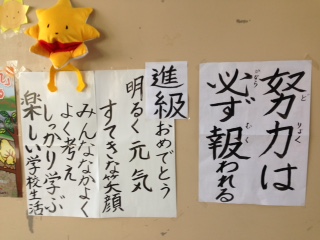 努力は
必ず報われる
進級おめでとう
明るく元気
すてきな笑顔
みんななかよく
よく考え
しっかり学ぶ
楽しい学校生活